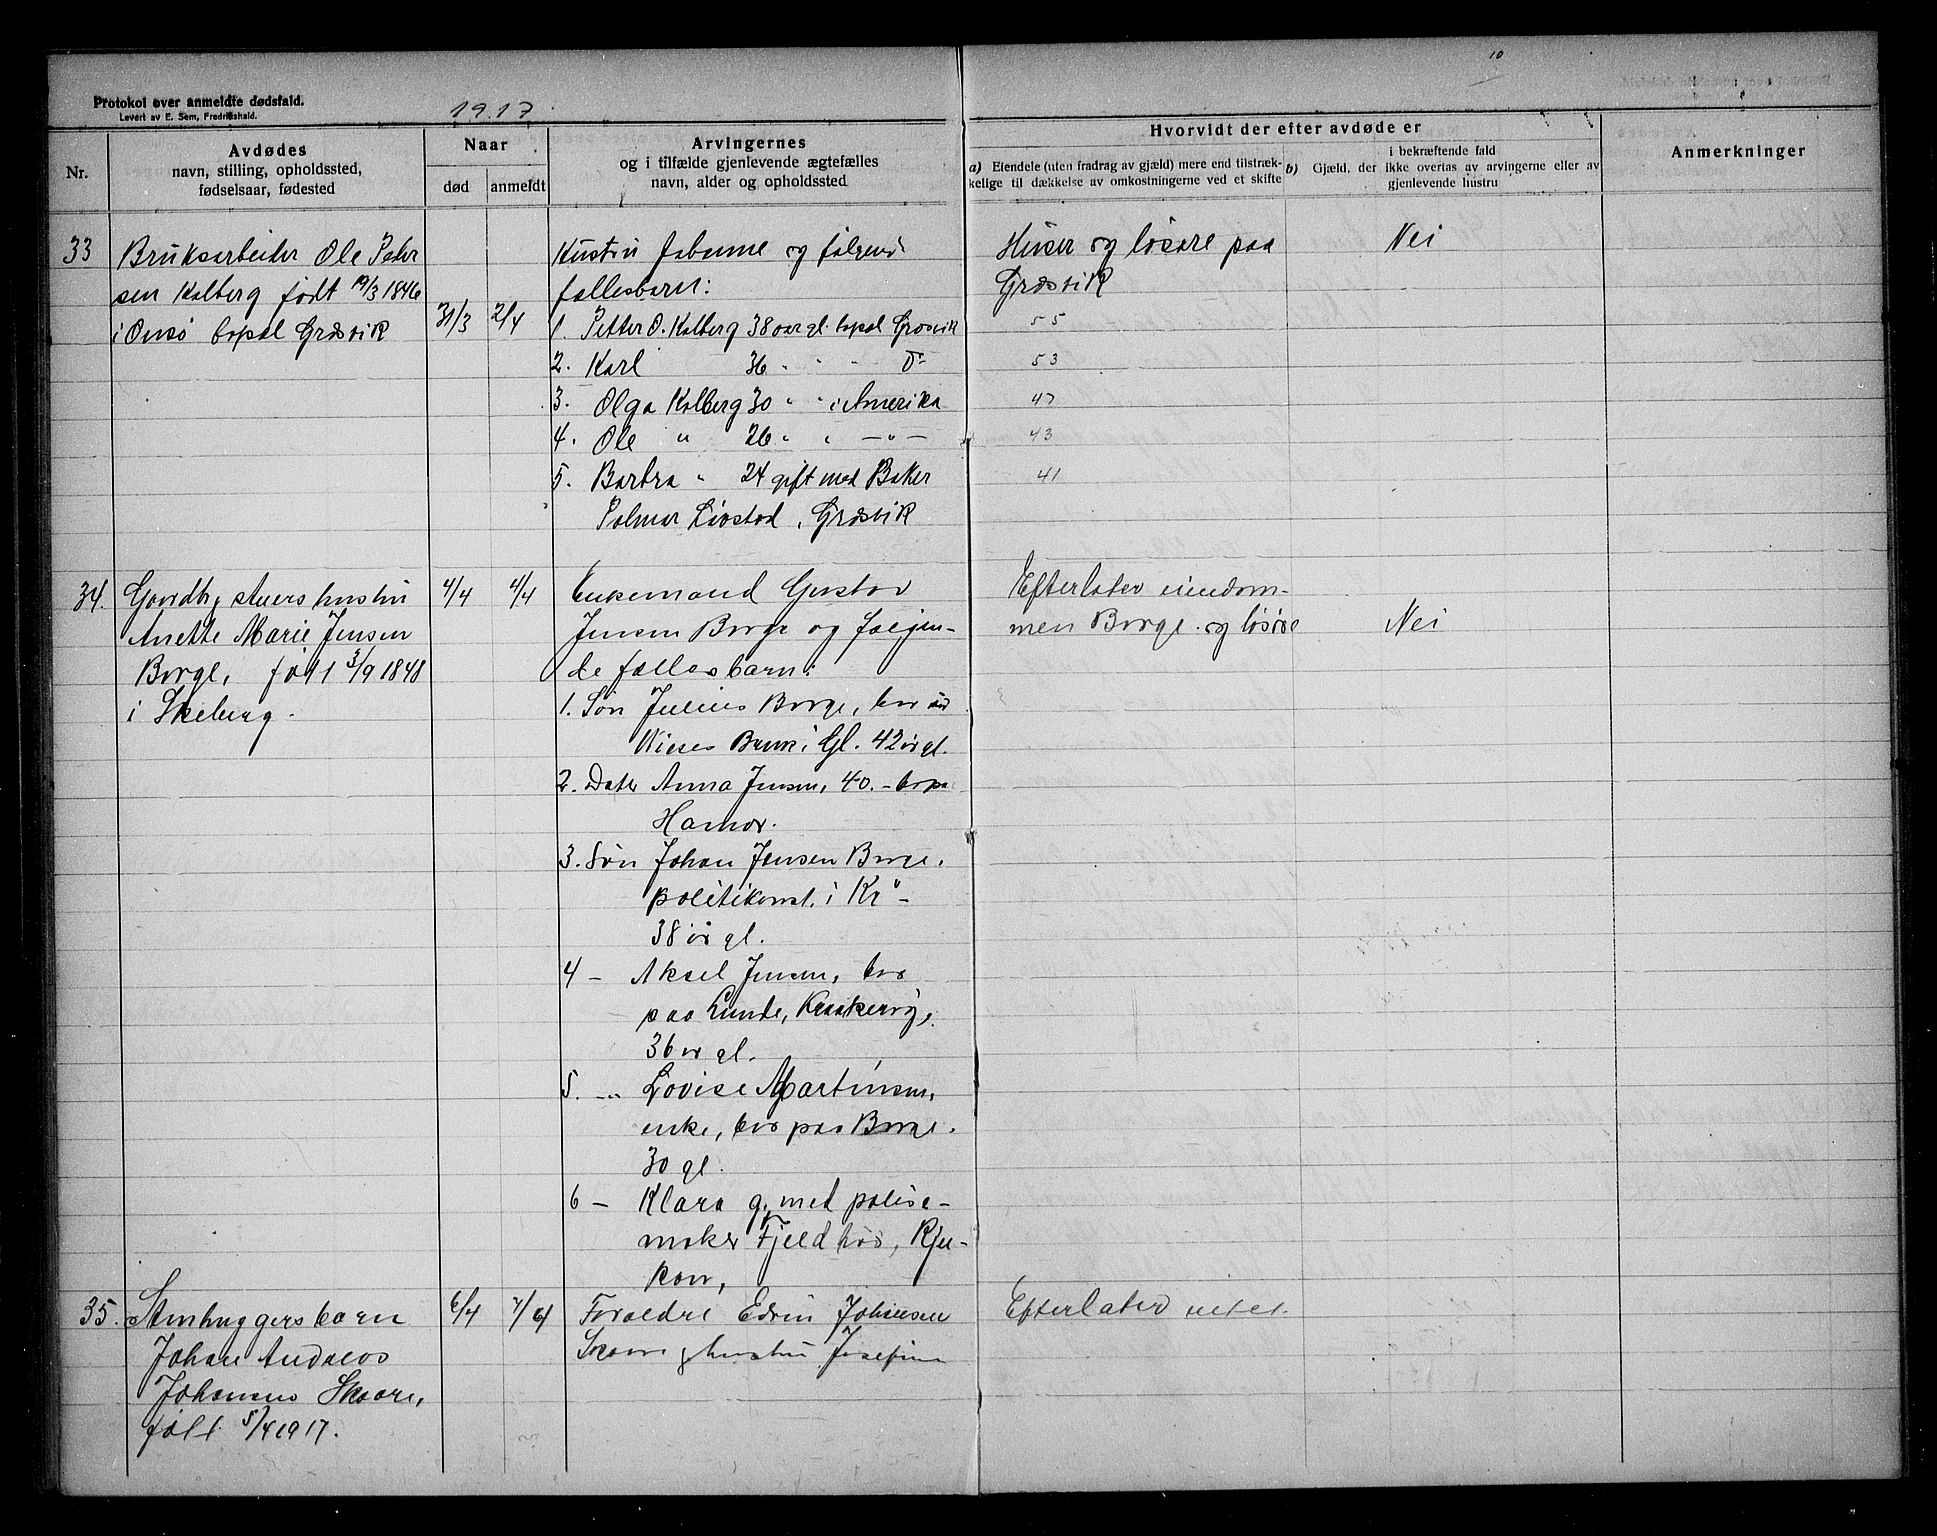 10
Protokol over anmeldte dødsfald.
Levert av E. Sem, Fredrikshald.
1917
Nr.
Avdødes
navn, stilling, opholdssted,
fødselsaar, fødested
Naar
død
anmeldt
Arvingernes
og i tilfælde gjenlevende ægtefælles
navn, alder og opholdssted
Hvorvidt der efter avdøde er
a) Eiendele (uten fradrag av gjæld) mere end tilstræk-
kelige til dækkelse av omkostningerne ved et skifte
b) Gjæld, der
i bekræftende fald
ikke overtas av arvingerne eller av
gjenlevende hustru
Anmerkninger
33
Bruksarbeider Ole Peter
sen Kolberg født 19/3 1846
i Onsø bopal Græsvik
31/3
2/4
Hustru og følgend
fællesbarn:
1. Petter O. Kolberg 38 aar gl. bopal Græsvik
2. Karl 36 " " - Do
3. Olga Kolberg 30 " " i Amerika
4. Ole " 26 " " —"—
5. Barbra " 24 gift med Baker
Polmar Livstad, Græsvik
Huser og løsøre paa
Græsvik
55
53
47
43
41
Nei
34.
Gaardbr hustru
Anette Marie Jensen
Borge, født 3/9 1848
i Skeberg.
4/4
4/4
Enkemand Gustav
Jensen Borge og følgen-
de fællesbarn:
1. Søn Julius Borge, bor ved
Wieses Bruk i Gl. 42 år gl.
2. Dater Anna Jensen, 40. - bopa
Hamar.
3. Søn Johan Jensen Borge,
politikonst. i Kr" -
38 år gl.
4 - Aksel Jensen, bor
paa Lunde, Kraakerøy,
36 år gl.
5. -"- Lovise Martinsen,
enke, bor paa Borge.
30 gl.
6 - Klara g. med pølse-
maker Fjeldhøs, Rju-
kan,
Efterlater eiendom-
men Borge og løsøre
Nei
35.
Stenhuggersbarn
Johan Andreas
Johansen Skaare,
født 5/4 1917.
6/4
7/4
Forældre Edvin Johansen
Skaare og hustru Josefine
Efterlater intet.